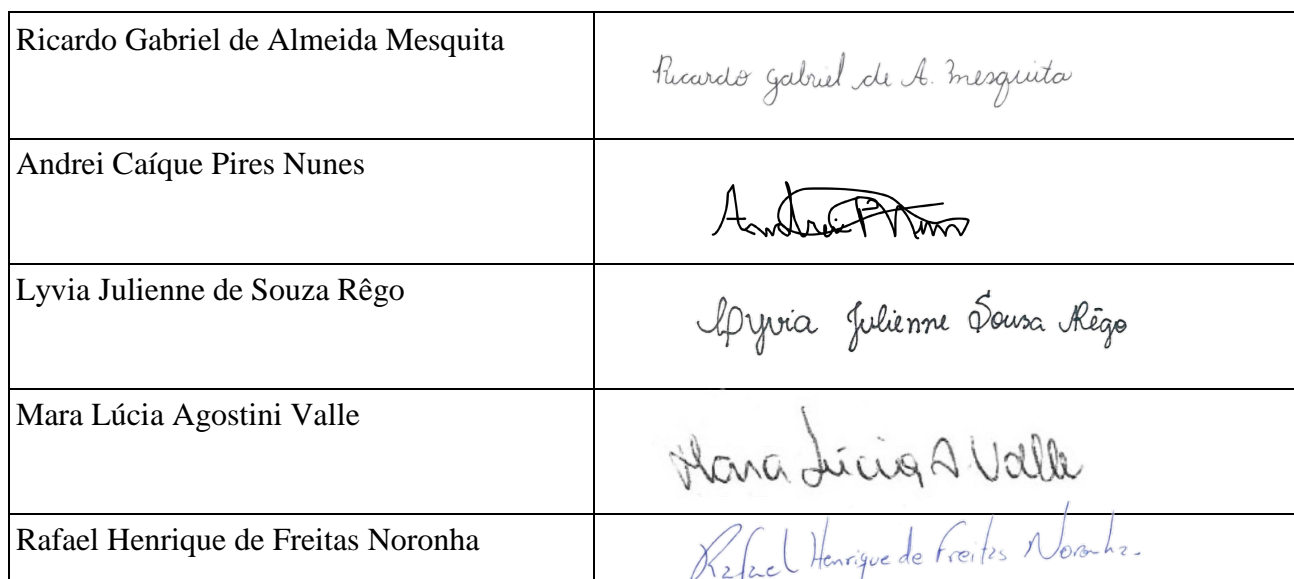 Ricardo Gabriel de Almeida Mesquita
Ricardo Gabriel de A. Mesquita
Andrei Caíque Pires Nunes
Andrei P Nunes
Lyvia Julienne de Souza Rêgo
Lyvia Julienne Sousa Rêgo
Mara Lúcia Agostini Valle
Mara Lúcia A Valle
Rafael Henrique de Freitas Noronha
Rafael Henrique de Freitas Noronha.